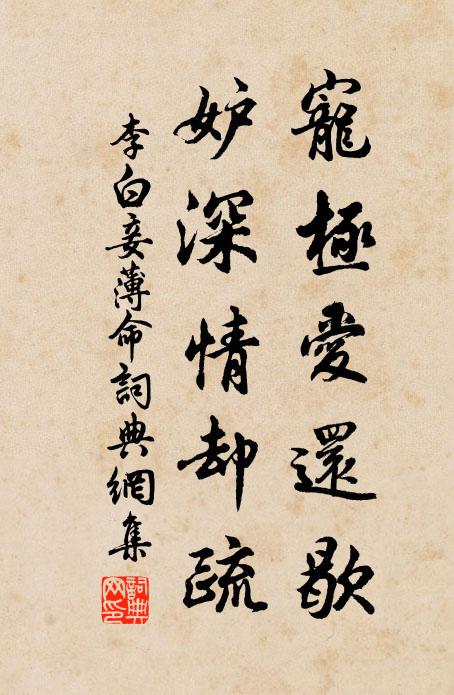 寵極愛還歇
妒深情却疏
李白妾薄命詞典網集